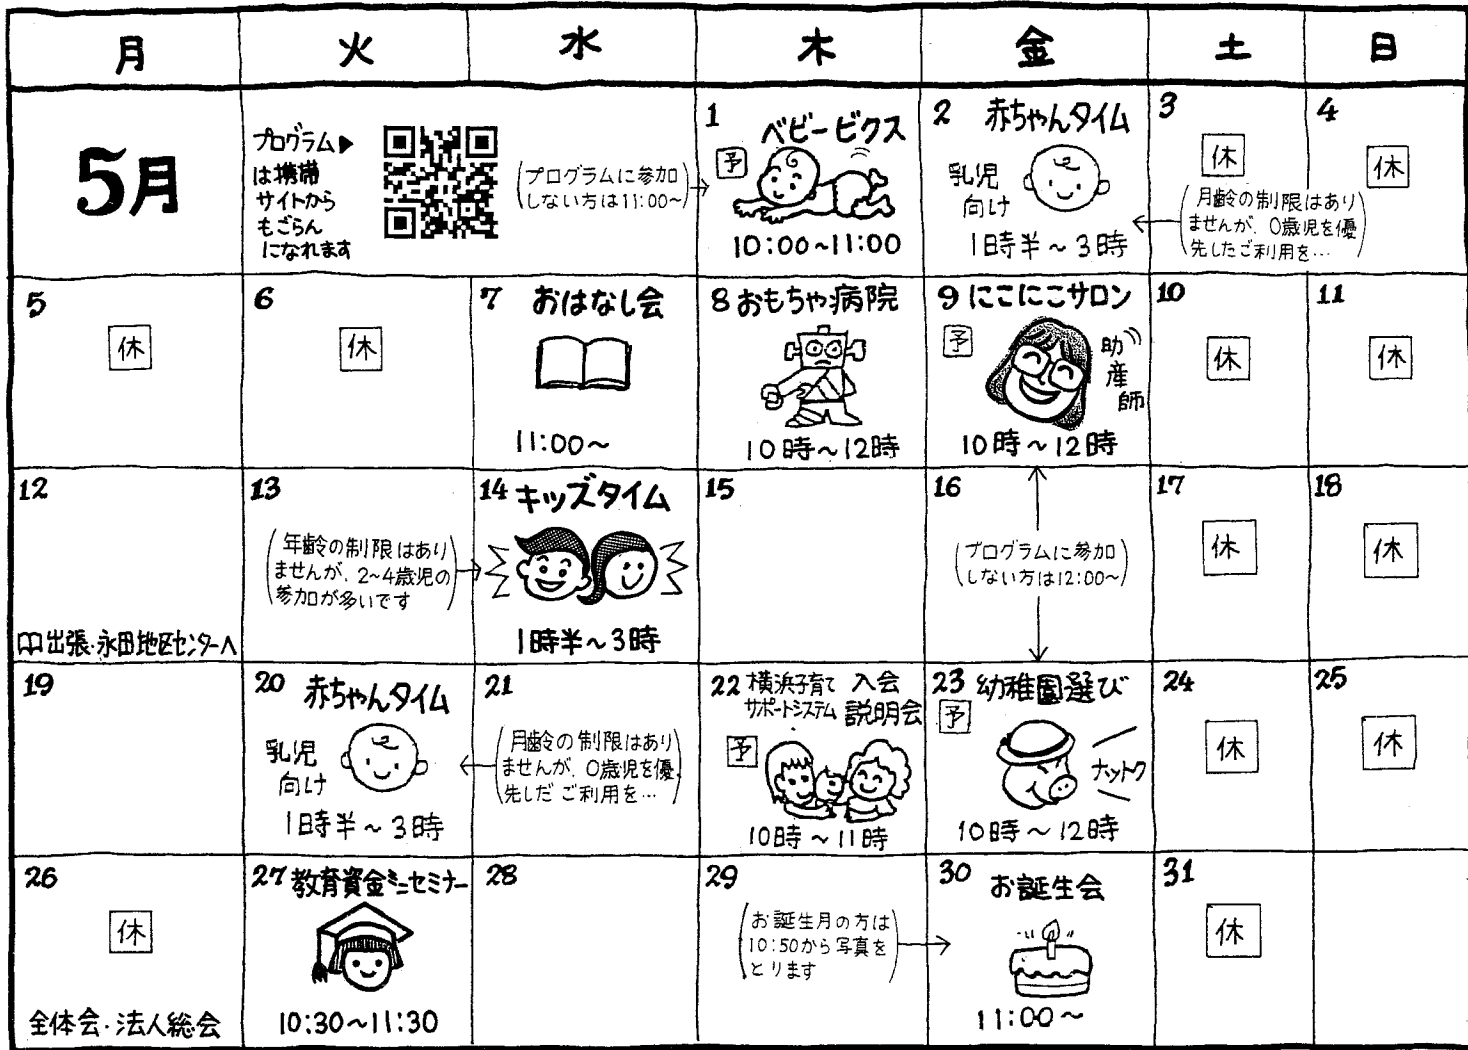 月 火 水 木 金 土 日
5月
プログラム▶
は携帯
サイトから
もごらん
になれます
(プログラムに参加
しない方は11:00~)
1 ベビービクス
予
10:00~11:00
2 赤ちゃんタイム
乳児
向け
1時半~3時
3
休
(月齢の制限はあり
ませんが、0歳児を優
先したご利用を…)
4
休
5
休
6
休
7 おはなし会
11:00~
8 おもちゃ病院
10時~12時
9 にこにこサロン
予
助産師
10時~12時
10
休
11
休
12
出張・永田地区センターへ
13
(年齢の制限はあり
ませんが、2~4歳児の
参加が多いです)
14 キッズタイム
1時半~3時
15
16
(プログラムに参加
しない方は12:00~)
17
休
18
休
19
20 赤ちゃんタイム
乳児
向け
1時半~3時
21
(月齢の制限はあり
ませんが、0歳児を優
先しだご利用を…)
22 横浜子育て 入会
サポートシステム 説明会
予
10時~11時
23 幼稚園選び
予
ナットク
10時~12時
24
休
25
休
26
休
全体会・法人総会
27 教育資金ミニセミナー
10:30~11:30
28
29
(お誕生月の方は
10:50から写真を
とります)
30 お誕生会
11:00~
31
休